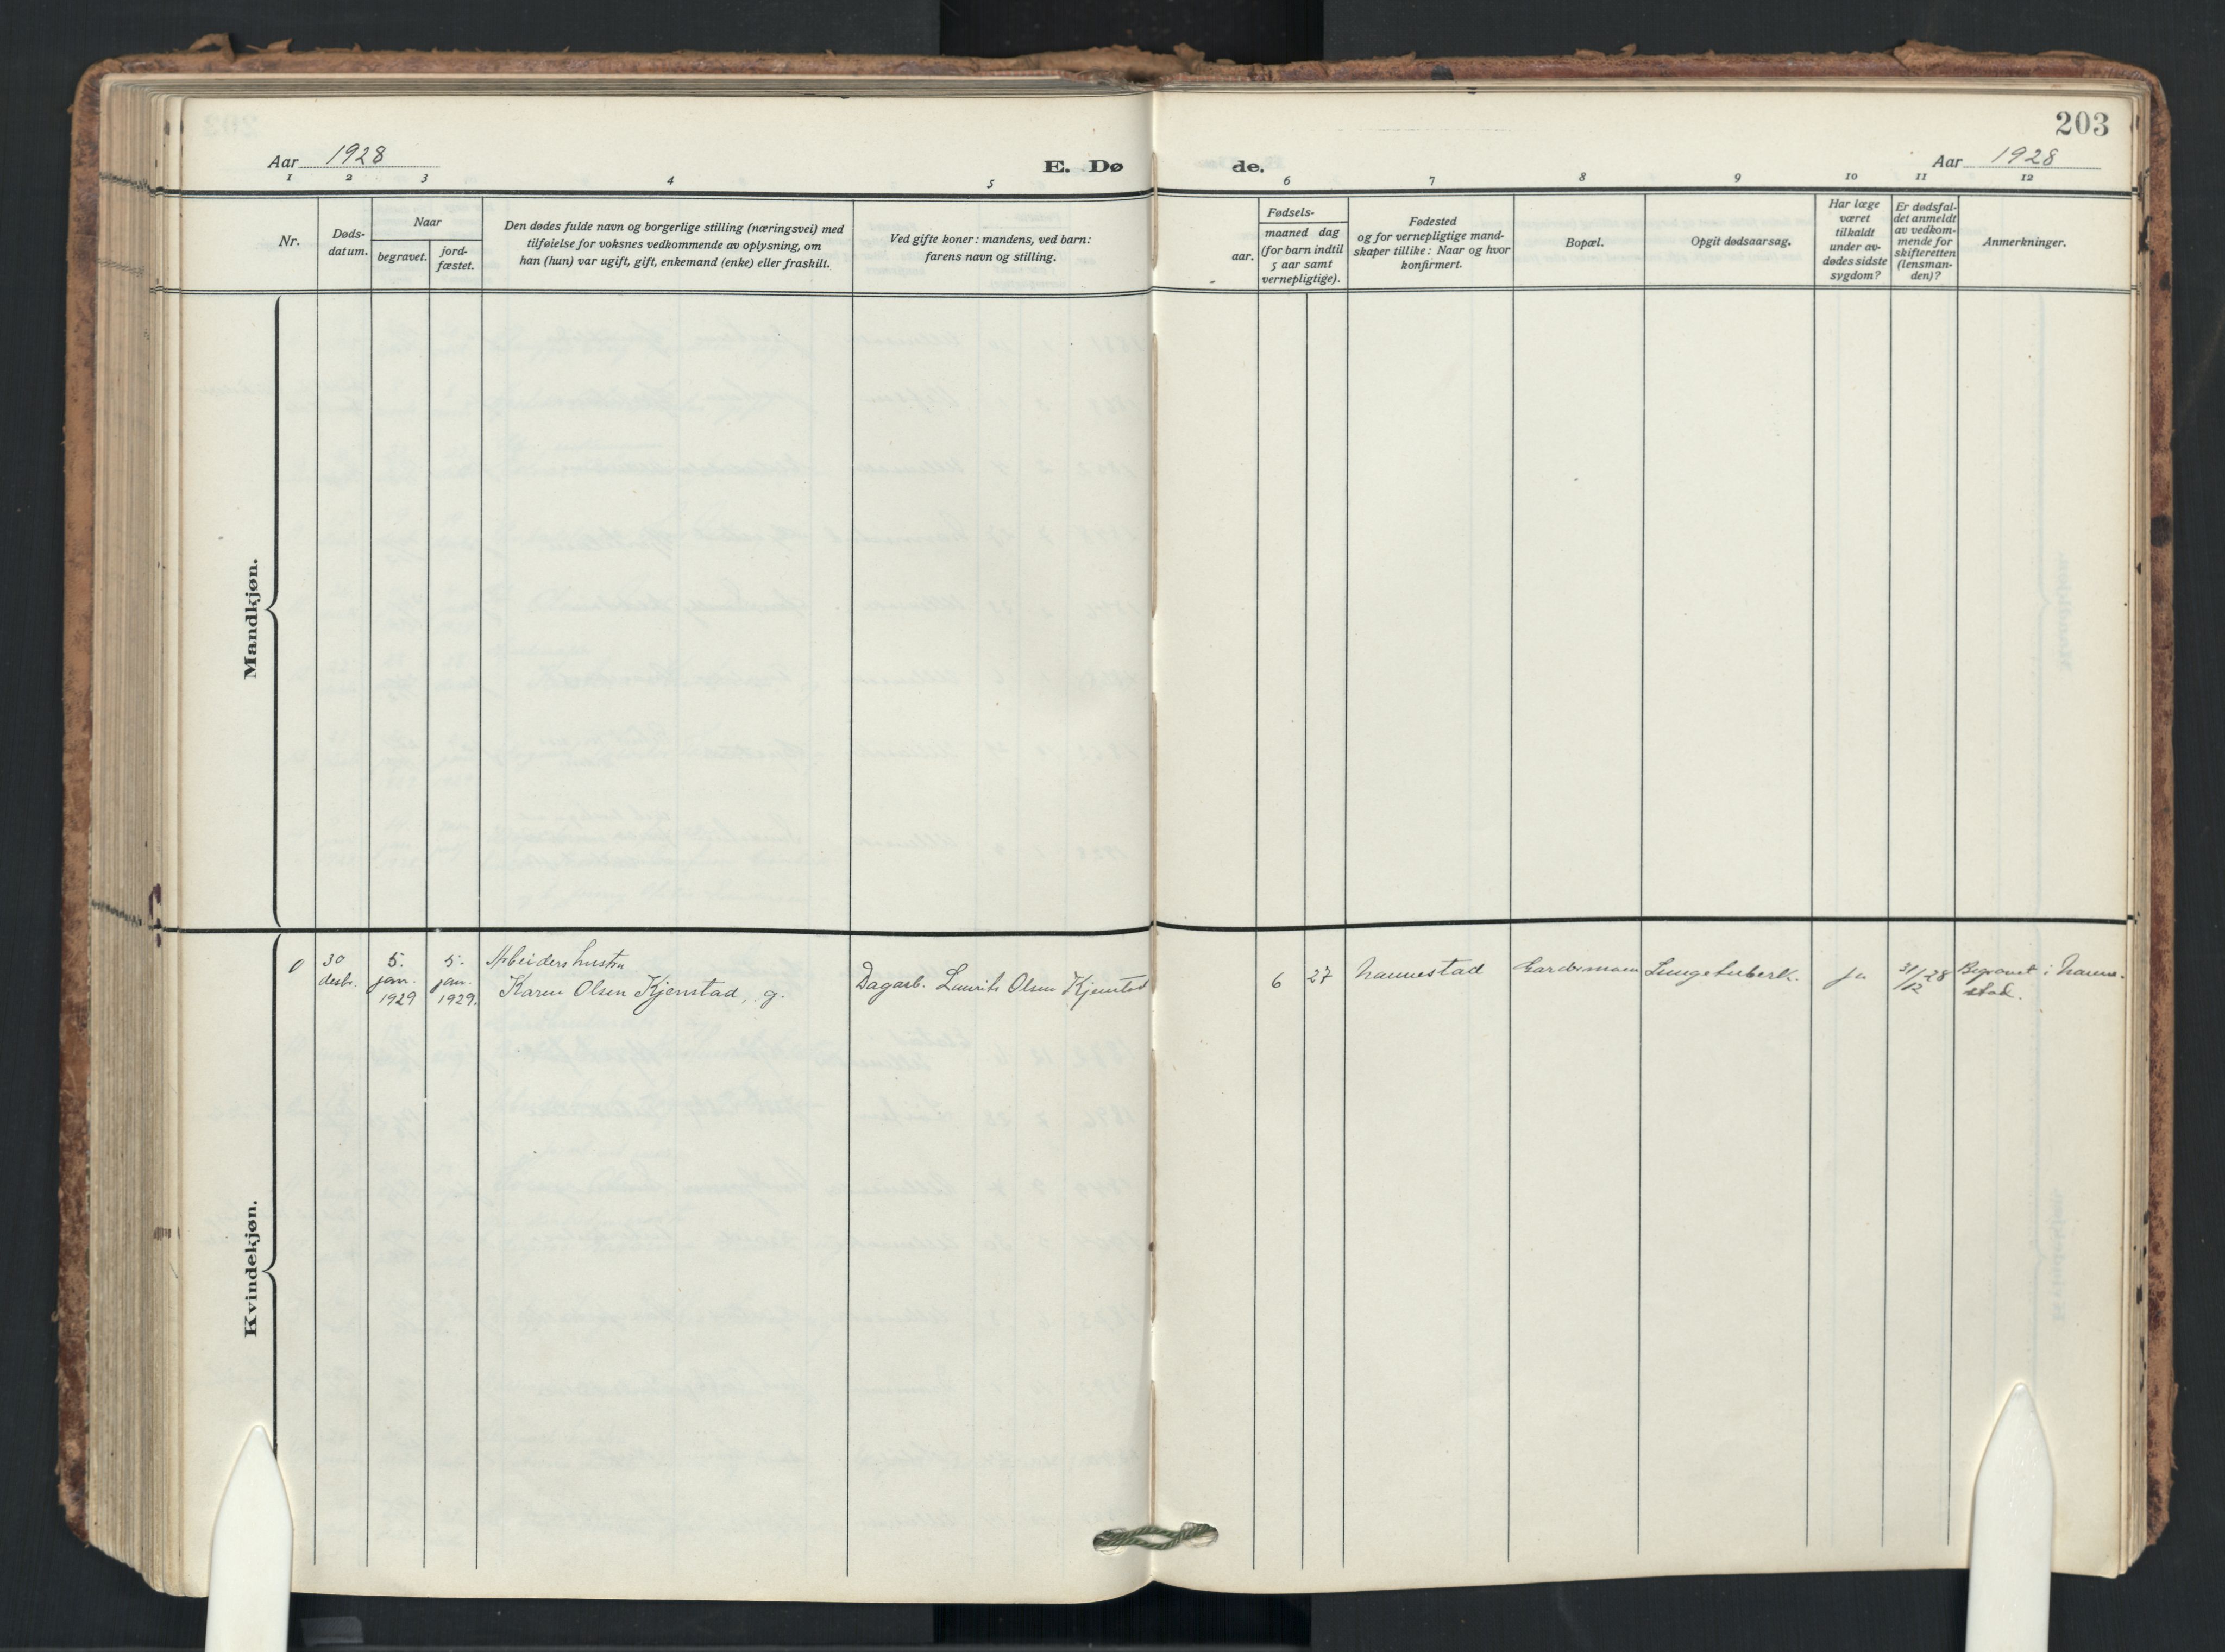 203
Aar 1928
E. Dø de.
Aar 1928
1 2 3 4 5 6 7 8 9 10 11 12
Nr.
Døds-
datum.
Naar
begravet.
jord-
fæstet.
Den dødes fulde navn og borgerlige stilling (næringsvei) med
tilføielse for voksnes vedkommende av oplysning, om
han (hun) var ugift, gift, enkemand (enke) eller fraskilt.
Ved gifte koner: mandens, ved barn:
farens navn og stilling.
Fødsels-
aar.
maaned dag
(for barn indtil
5 aar samt
vernepligtige).
Fødested
og for vernepligtige mand-
skaper tillike: Naar og hvor
konfirmert.
Bopæl.
Opgit dødsaarsag.
Har læge
været
tilkaldt
under av-
dødes sidste
sygdom?
Er dødsfal-
det anmeldt
av vedkom-
mende for
skifteretten
(lensman-
den)?
Anmerkninger.
Mandkjøn.
Kvindekjøn.
0
30
desbr.
5.
jan.
1929
5.
jan.
1929.
Arbeidershustru
Karen Olsen Kjenstad, g.
Dagarb. Laurits Olsen Kjenstad
6
27
Nannestad
Gardermoen
Lungetuberk.
ja
31/12-28
Begravet i Nanne-
stad.